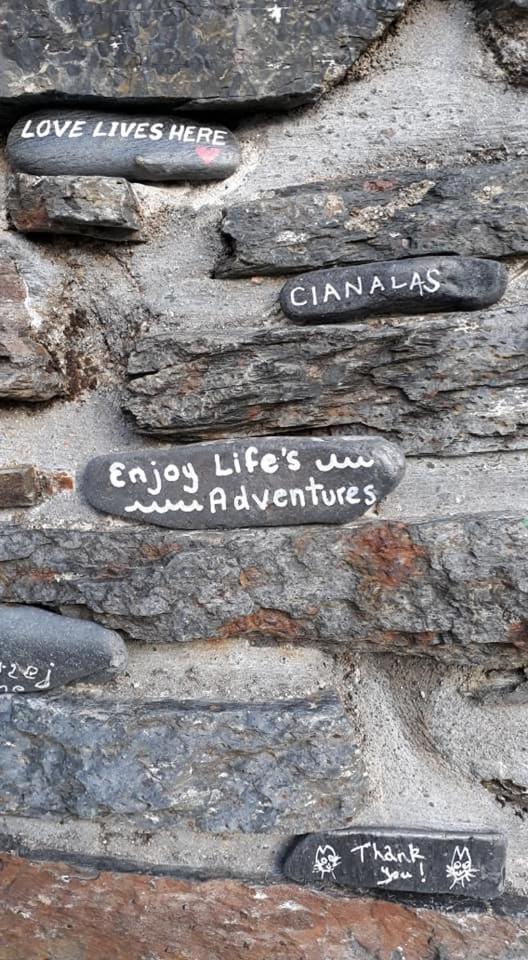 LOVE LIVES HERE
CIANALAS
Enjoy Life's
Adventures
Thank
you!